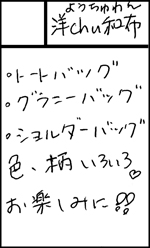 ようちゅわん
洋chu和布
・トートバッグ
・グラニーバッグ
・ショルダーバッグ
色、柄いろいろ♡
お楽しみに!!